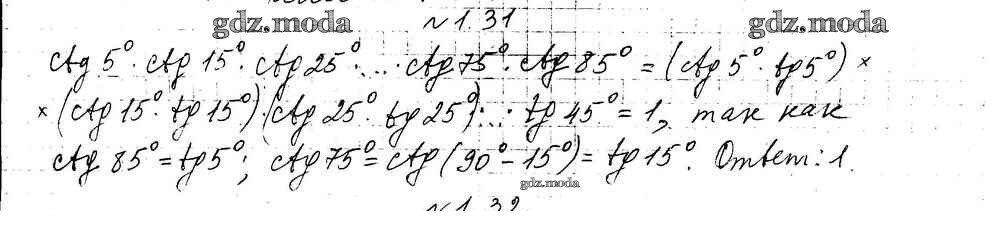 № 1.31
gdz.moda gdz.moda
ctg 5° · ctg 15° · ctg 25° · ... · ctg 75° · ctg 85° = (ctg 5° · tg 5°) ×
× (ctg 15° · tg 15°) · (ctg 25° · tg 25°) · ... · tg 45° = 1, так как
ctg 85° = tg 5°; ctg 75° = ctg (90° - 15°) = tg 15°. Ответ: 1.
gdz.moda
№ 1.32